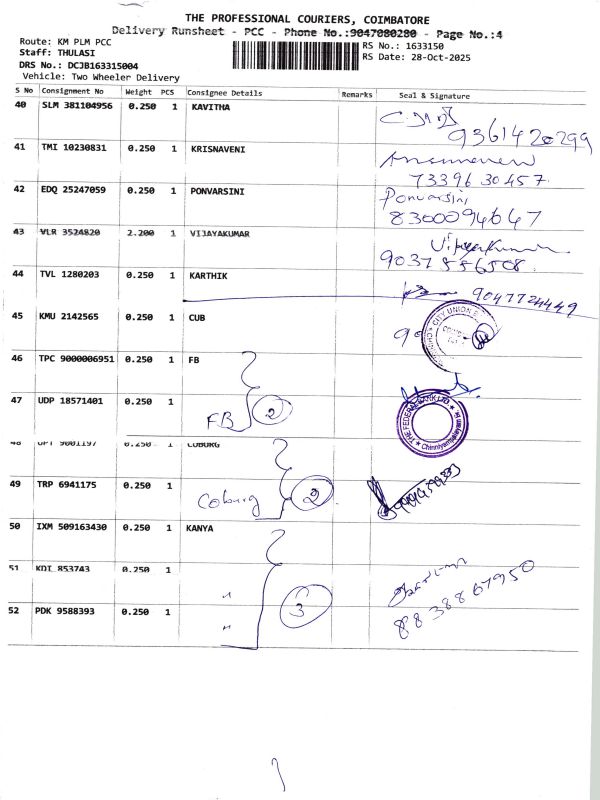 THE PROFESSIONAL COURIERS, COIMBATORE
Delivery Runsheet - PCC - Phone No.:9047080280 - Page No.:4
Route: KM PLM PCC
Staff: THULASI
DRS No.: DCJB163315004
Vehicle: Two Wheeler Delivery
RS No.: 1633150
RS Date: 28-Oct-2025
S No Consignment No Weight PCS Consignee Details Remarks Seal & Signature
40 SLM 381104956 0.250 1 KAVITHA
9361420299
41 TMI 10230831 0.250 1 KRISNAVENI
7339630457
42 EDQ 25247059 0.250 1 PONVARSINI Ponvarsini
8300094647
43 VLR 3524820 2.200 1 VIJAYAKUMAR Vijayakumar
9037556508
44 TVL 1280203 0.250 1 KARTHIK
9047724449
45 KMU 2142565 0.250 1 CUB
CITY UNION
46 TPC 9000006951 0.250 1 FB
47 UDP 18571401 0.250 1
FB 2
THE FEDERAL BANK LTD
Chinniyampalayam
48 9001197 0.250 1 COBURG
49 TRP 6941175 0.250 1
Coburg 2
50 IXM 509163430 0.250 1 KANYA
51 KDI 853743 0.250 1
52 PDK 9588393 0.250 1
" 3
"
8838867950